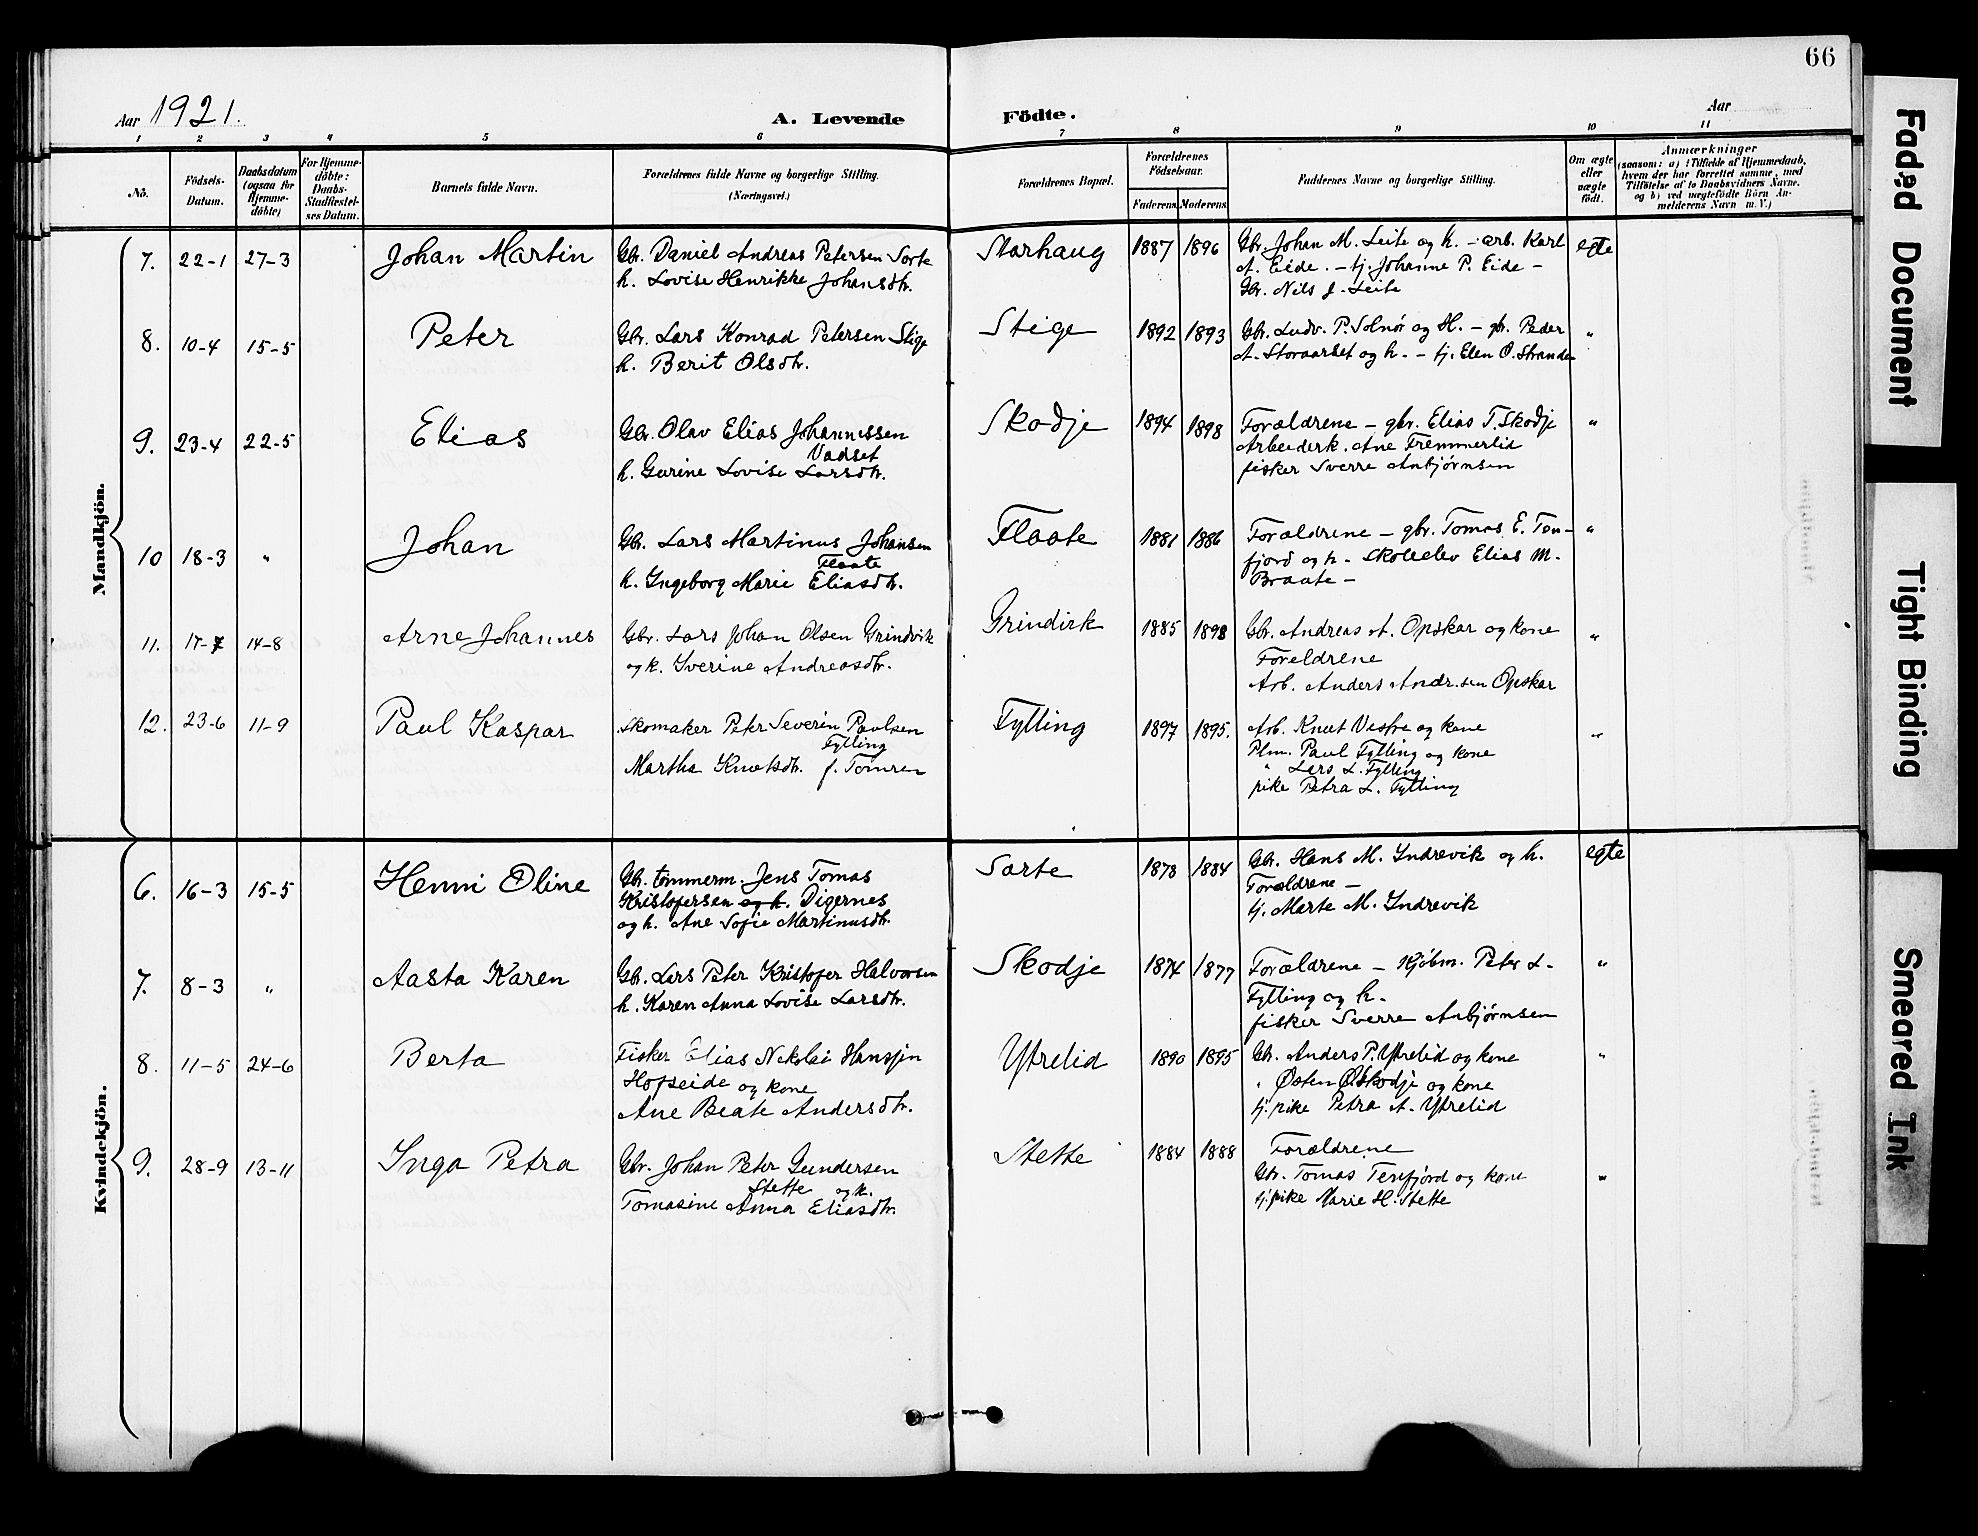 66
Aar 1921.
A. Levende Födte.
Aar
1 2 3 4 5 6 7 8 9 10 11
No.
Födsels-Datum.
Daabsdatum (ogsaa for Hjemme-döbte)
For Hjemme-döbte: Daabs-Stadfæstel-ses Datum.
Barnets fulde Navn.
Forældrenes fulde Navne og borgerlige Stilling.
(Næringsvei.)
Forældrenes Bopæl.
Forældrenes Födselsaar.
Faderens. Moderens.
Faddernes Navne og borgerlige Stilling.
Om ægte eller uægte födt.
Anmærkninger
(saasom: a) i Tilfælde af Hjemmedaab,
hvem der har forrettet samme, med
Tilföielse af to Daabsvidners Navne.
og b) ved uægtefödte Börn An-
melderens Navn m. V.)
Mandkjön.
7. 22-1 27-3 Johan Martin
Gbr. Daniel Andreas Petersen Sorte
h. Lovise Henrikke Johansdtr.
Storhaug 1887 1896
Gbr. Johan M. Leite og h. - arb. Karl
A. Eide. - tj. Johanne P. Eide -
Gbr. Nils J. Leite
egte
8. 10-4 15-5 Peter
Gbr. Lars Konrad Petersen Stige
h. Berit Olsdtr.
Stige 1892 1893
Gbr. Ludv. P. Solnør og H. - gbr. Peder
A. Storaarset og h. - tj. Elen O. Strande
"
9. 23-4 22-5 Elias
Gbr. Olav Elias Johannessen
Vadset
h. Gurine Lovise Larsdtr.
Skodje 1894 1898
Forældrene - gbr. Elias T. Skodje
Arbeiderk. Ane Fremmerlid
fisker Sverre Anbjørnsen
"
10 18-3 " Johan
Gbr. Lars Martinus Johansen
Flaate
h. Ingeborg Marie Eliasdtr.
Flaate 1881 1886
Forældrene - gbr. Tomas E. Ten-
fjord og h. - skoleelev Elias M.
Braate -
"
11. 17-7 14-8 Arne Johannes
Gbr. Lars Johan Olsen Grindvik
og k. Iverine Andreasdtr.
Grindvik 1885 1898
Gbr. Andreas A. Opskar og kone
Foreldrene
Arb. Anders Andr.sen Opskar
"
12. 23-6 11-9 Paul Kaspar
Skomaker Petr Severin Paulsen
Fylling
Martha Knutsdtr. f. Tomren
Fylling 1897 1895.
Arb. Knut Vestre og kone
Plm. Paul Fylling og kone
" Lars L. Fylling
pike Petra L. Fylling
"
Kvindekjön.
6. 16-3 15-5 Henni Oline
Gbr. tømmerm. Jens Tomas
Kristofersen og h. Digernes
og h. Ane Sofie Martinusdtr.
Sorte 1878 1884
Gbr. Hans M. Indrevik og h.
Forældrene -
tj. Marte M. Indrevik
egte
7. 8-3 " Aasta Karen
Gbr. Lars Peter Kristofer Halvorsen
h. Karen Anna Lovise Larsdtr.
Skodje 1874 1877
Forældrene - Kjøbm. Peter L.
Fylling og h.
fisker Sverre Anbjørnsen
"
8. 11-5 24-6 Berta
Fisker Elias Nikolai Hanssen
Hofseide og kone
Ane Beate Andersdtr.
Ytrelid 1890 1895
Gbr. Anders P. Ytrelid og kone
" Østen Ø. Skodje og kone
tj. pike Petra A. Ytrelid
"
9. 28-9 13-11 Inga Petra
Gbr. Johan Peter Gundersen
Stette og k.
Tomasine Anna Eliasdtr.
Stette 1884 1888
Forældrene
Gbr. Tomas Tenfjord og kone
tj. pike Marie H. Stette
"
Faded Document
Tight Binding
Smeared Ink